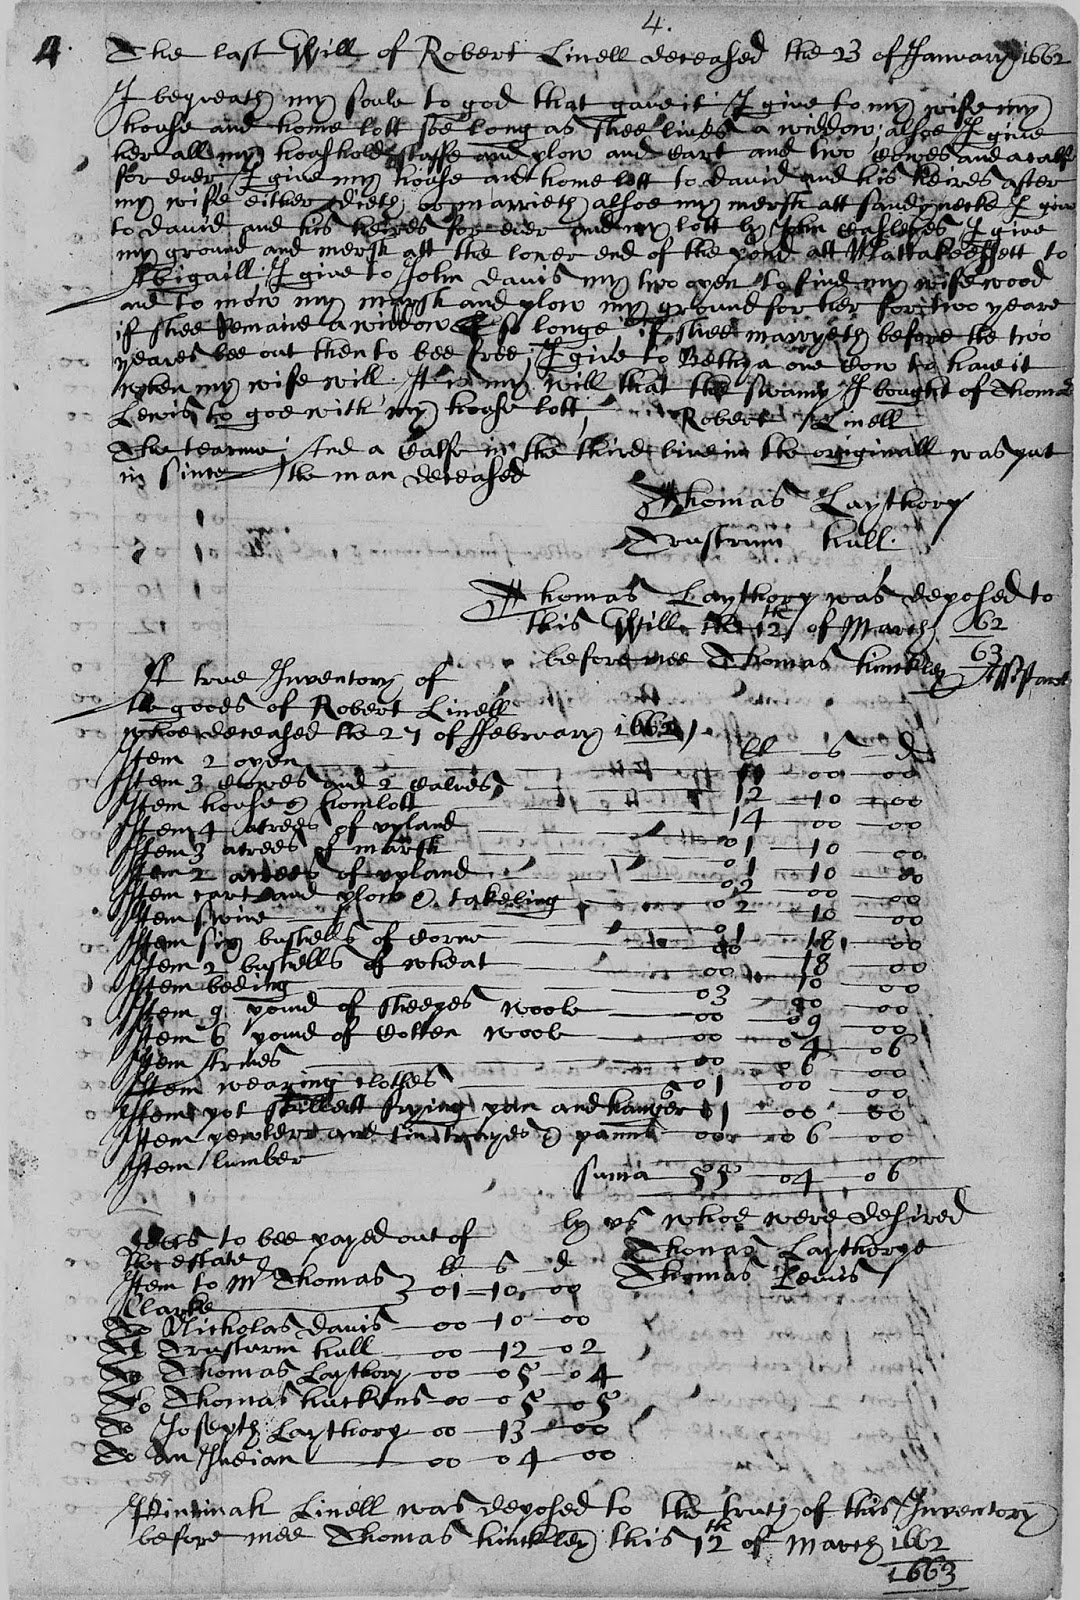 4.
4.
The last Will of Robert Linell deceased the 23 of January 1662
I bequeath my soule to god that gave it I give to my wife my
house and home lott soe long as shee lives a widdow; alsoe I give
her all my houshold stuffe and plow and Cart and two Cowes and a calfe
for ever I give my house and home lott to david and his heires after
my wife either dieth or marrieth alsoe my mersh att sandy necke I give
to david and his heires for ever and my lott by John I give
my ground and mersh att the loner end of the pond att Mattakessett to
Abigaill I give to John davis my two oxen to find my wife wood
and to mow my marsh and plow my ground for her for two yeare
if shee Remaine a widdow soe longe if shee marryeth before the two
yeares bee out then to bee free; I give to Bethya one Cow to have it
when my wife will It is my will that the swamp I bought of Thomas
Lewis to goe with my house lott; Robert Linell
The tearme; And a Calfe in the third line in the originall was put
in since the man deceased
Thomas Laythorp
Trustrum hull.
Thomas Laythorp was deposed to
this Will the 12th of March 62
63
before mee Thomas hinckley Assistant
A true Inventory of
the goods of Robert Linell
whoe deceased the 27 of ffebruary 1662
ll s d
Item 2 oxen 11 00 00
Item 3 Cowes and 2 Calves 12 10 00
Item house & homlott 14 00 00
Item 4 acrees of upland 01 10 00
Item 3 acrees of marsh 01 10 00
Item 2 acrees of upland 02 00 00
Item cart and plow & takeling 02 10 00
Item swine 01 18 00
Item six bushells of Corne 00 18 00
Item 2 bushells of wheat 00 10 00
Item beding 03 00 00
Item 9 pound of sheepes woole 00 09 00
Item 6 pound of Cotten woole 00 04 06
Item 00 06 00
Item wearing clothes 01 00 00
Item pot skillett frying pan and hanger 01 00 00
Item pewter and tin trayes & panns 00 06 00
Item lumber
suma 55 04 06
by us whoe were desired
Thomas Laythorpe
Thomas Lewis
debts to bee payed out of
the estate
ll s d
Item to Mr Thomas
Clarke 01 10 00
To Nicholas davis 00 10 00
To Trusturm hull 00 12 02
To Thomas Laythorp 00 05 04
To Thomas huckens 00 05 05
To Joseph Laythorp 00 13 00
To an Indian 00 04 00
59
Pininnah Linell was deposed to the truth of this Inventory
before mee Thomas hinckley this 12th of March 1662
1663